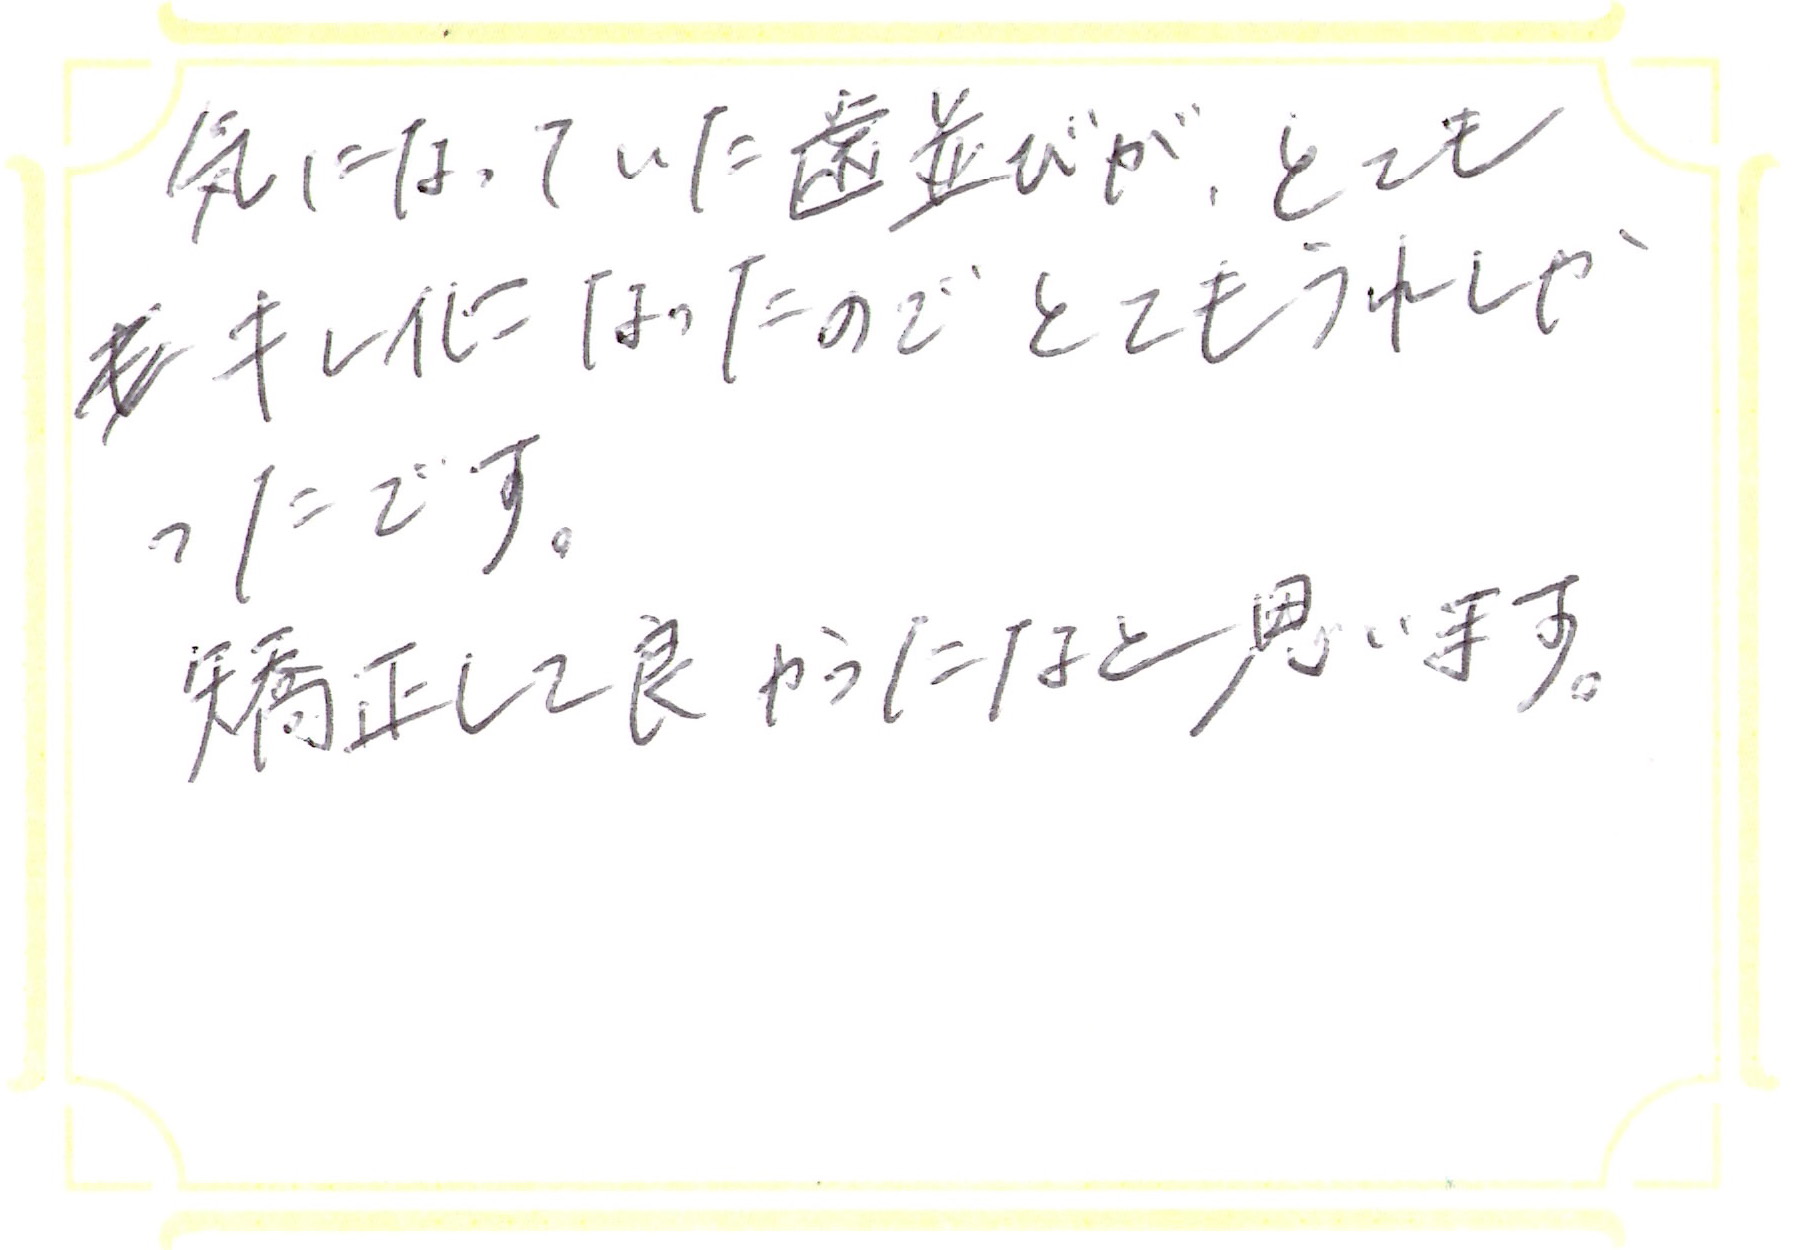 気になっていた歯並びが、とても
キレイになったのでとてもうれしか
ったです。
矯正して良かったなと思います。